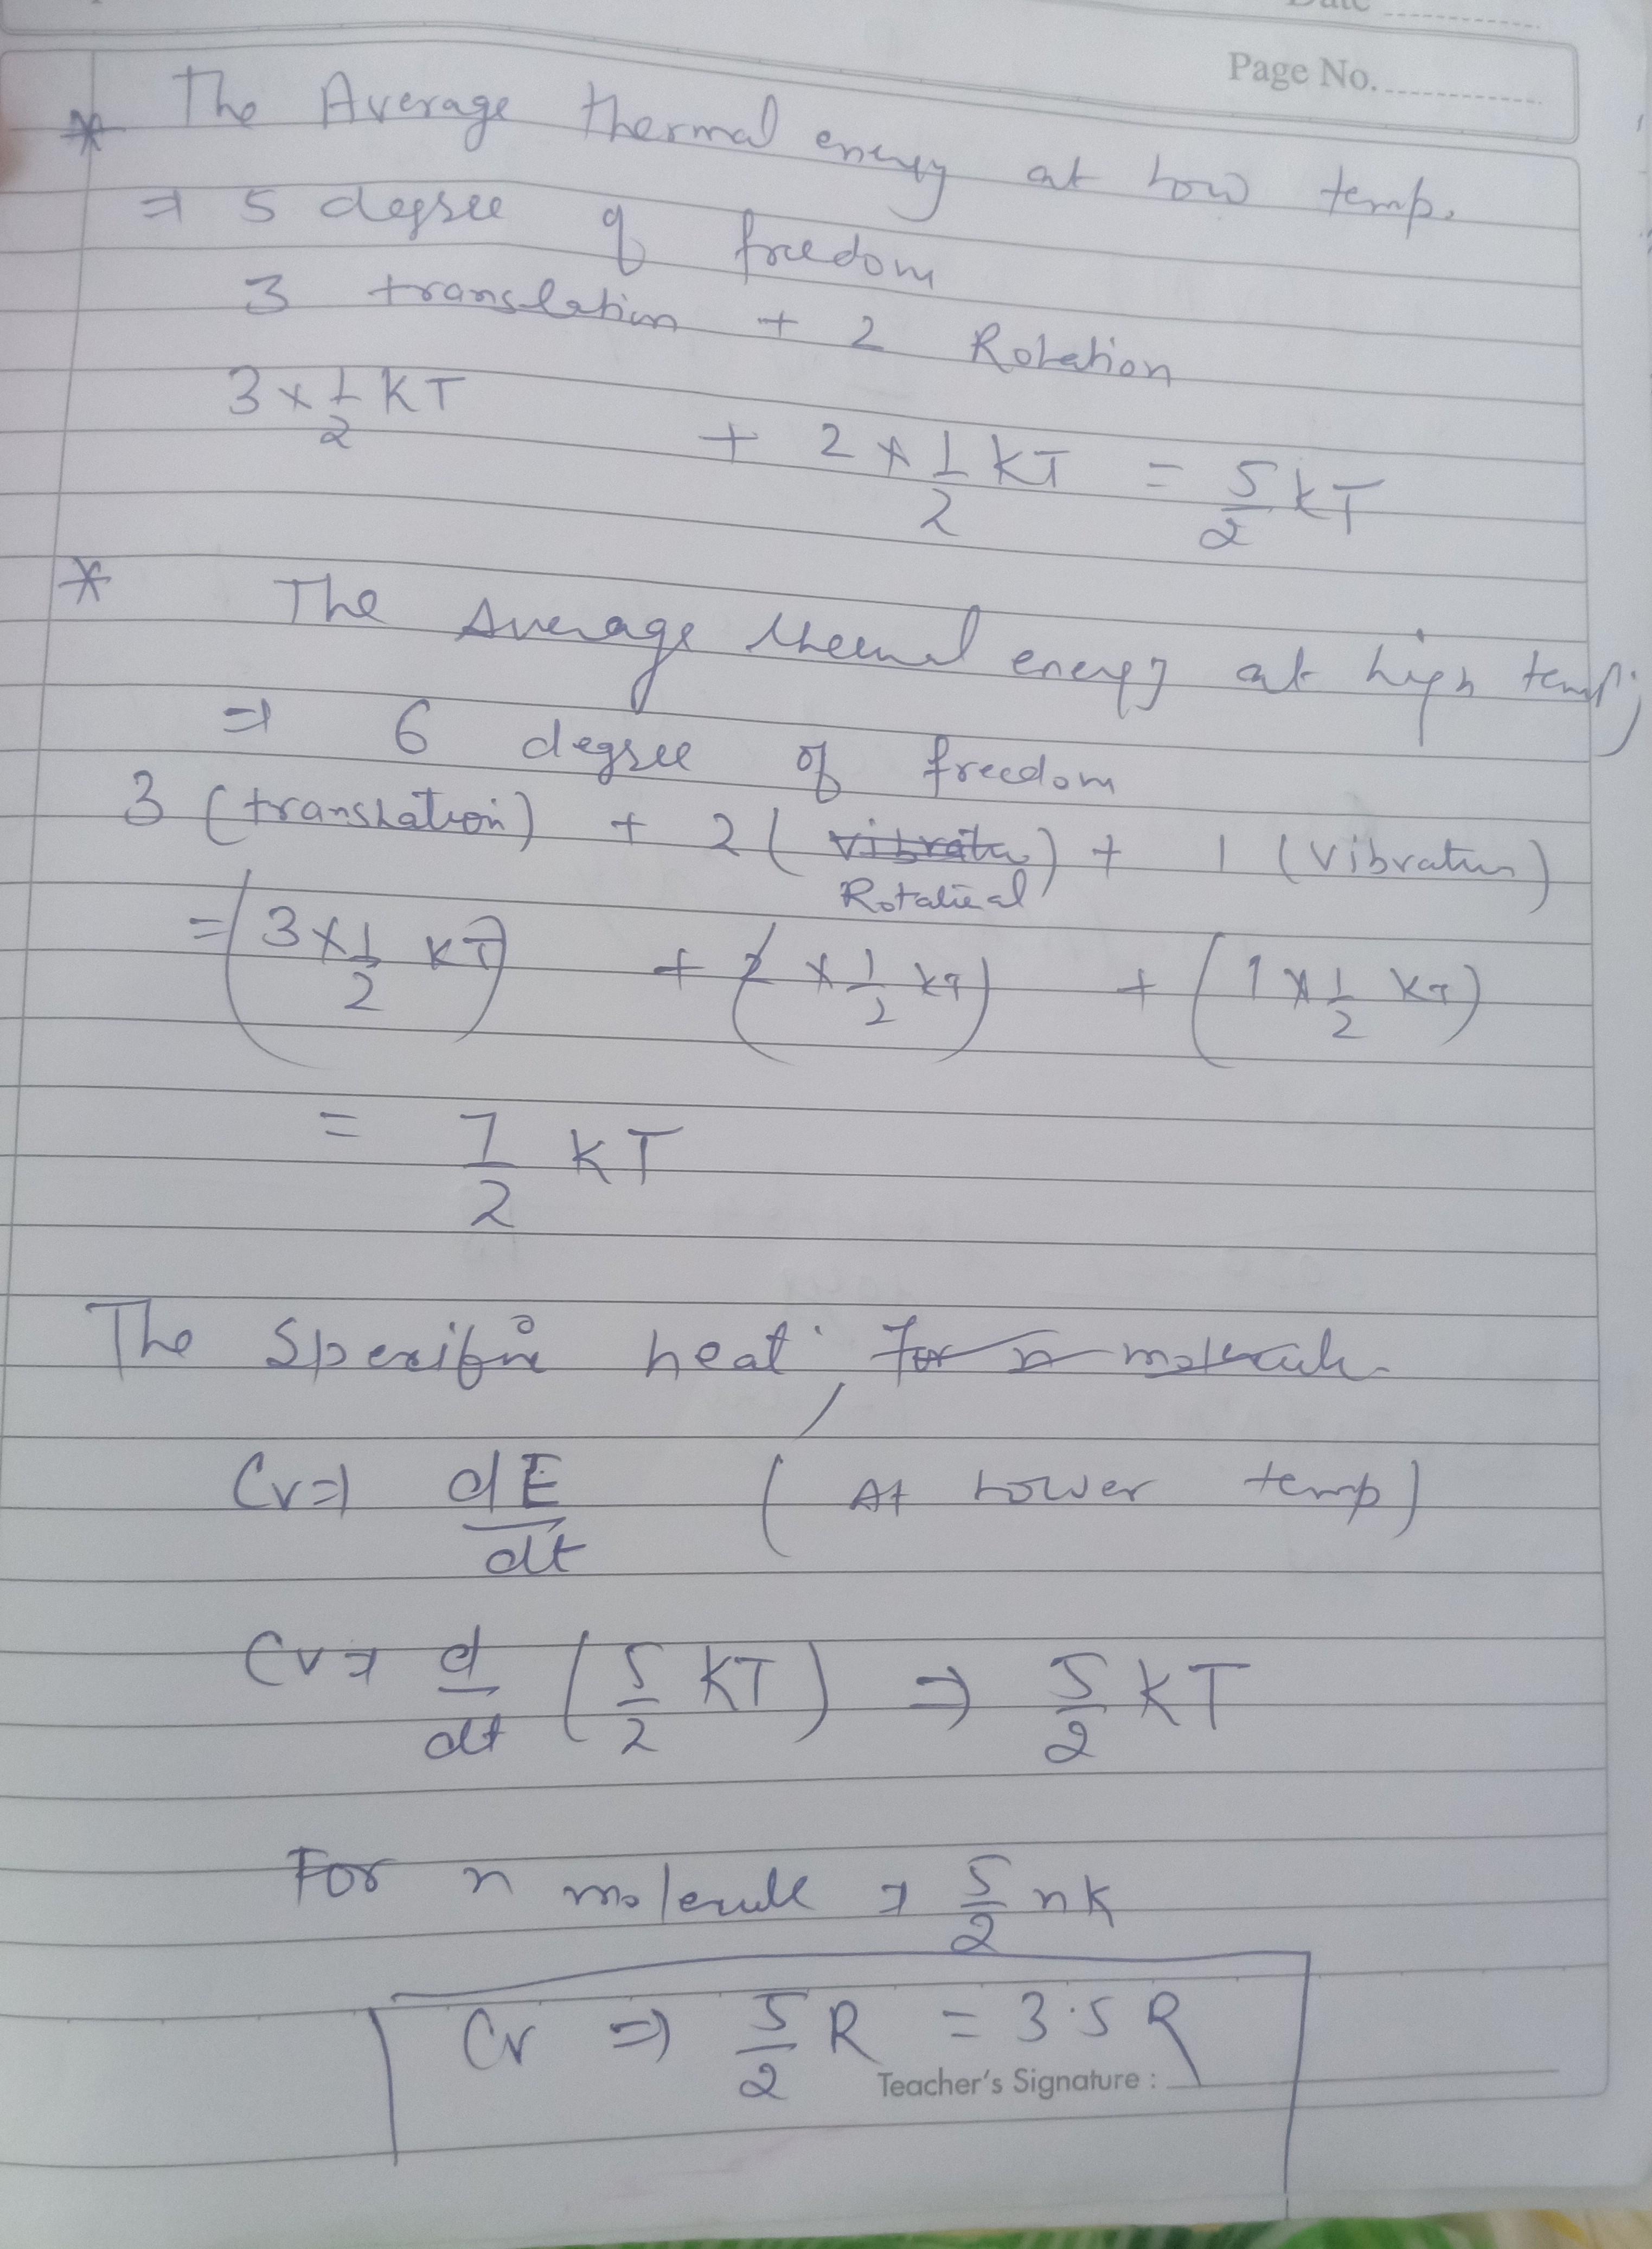 Date
Page No.
* The Average thermal energy at Low temp.
⇒ 5 degree of freedom
3 translation + 2 Rotation
3 × 1/2 KT + 2 × 1/2 KT = 5/2 KT
* The Average thermal energy at high temp;
⇒ 6 degree of freedom
3 (translation) + 2 ( Rotational ) + 1 (Vibration)
= (3 × 1/2 KT) + (2 × 1/2 KT) + (1 × 1/2 KT)
= 7/2 KT
The Specific heat, For n molecule
Cv ⇒ dE/dt ( At Lower temp)
Cv ⇒ d/dt (5/2 KT) ⇒ 5/2 KT
For n molecule ⇒ 5/2 nK
Cv ⇒ 5/2 R = 3.5 R
Teacher's Signature :